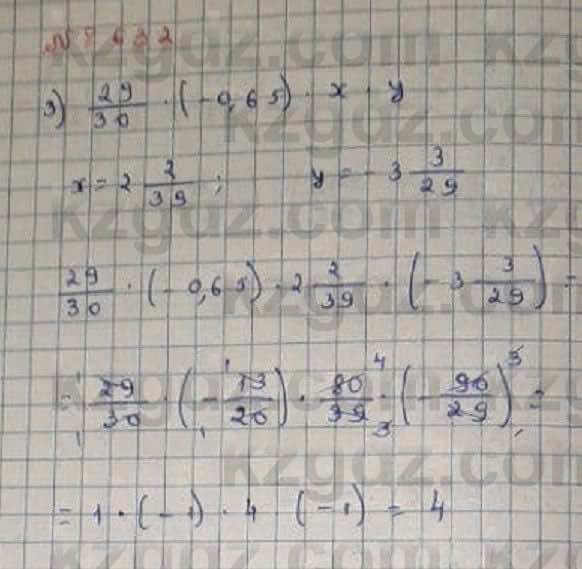 № 5 632
3) 29/30 · (-0,65) · x · y
x = 2 2/39 ; y = - 3 3/29
29/30 · (-0,65) · 2 2/39 · (- 3 3/29) =
= 29/30 · (- 13/20) · 80/39 · (- 90/29) =
= 1 · (-1) · 4 (-1) = 4
kzgdz.com